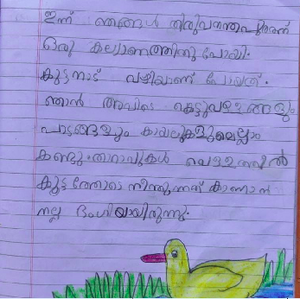 ഇന്ന് ഞങ്ങൾ തിരുവനന്തപുരത്ത്
ഒരു കല്യാണത്തിനു പോയി.
കുട്ടനാട് വഴിയാണ് പോയത്.
ഞാൻ അവിടെ കെട്ടുവള്ളങ്ങളും
പാടങ്ങളും കായലുകളുമെല്ലാം
കണ്ടു. താറാവുകൾ വെള്ളത്തിൽ
കൂട്ടത്തോടെ നീന്തുന്നത് കാണാൻ
നല്ല ഭംഗിയായിരുന്നു.